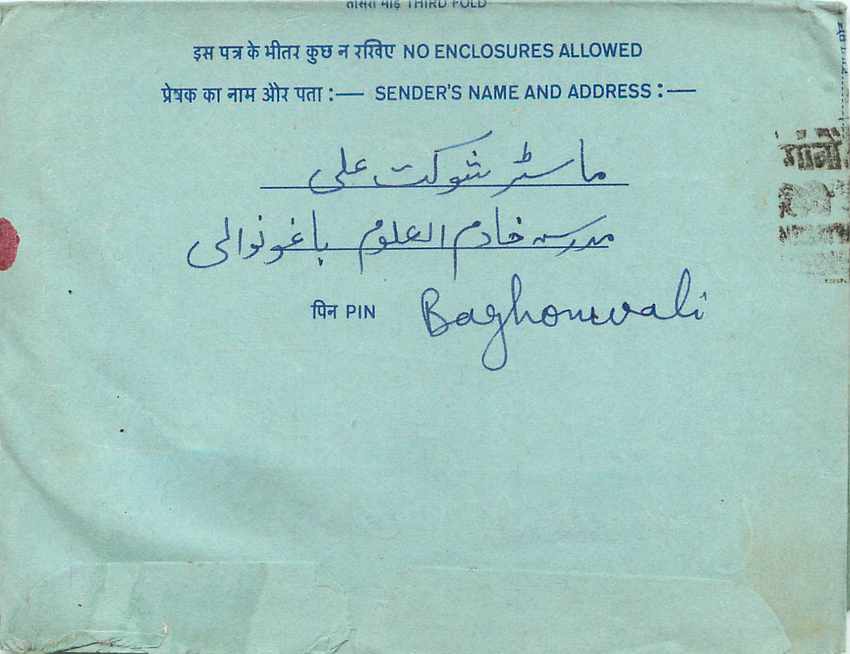 तीसरा मोड़ THIRD FOLD
इस पत्र के भीतर कुछ न रखिए NO ENCLOSURES ALLOWED
प्रेषक का नाम और पता :— SENDER'S NAME AND ADDRESS :—
ماسٹر شوکت علی
مدرسہ خادم العلوم باغونوالی
पिन PIN Baghonwali